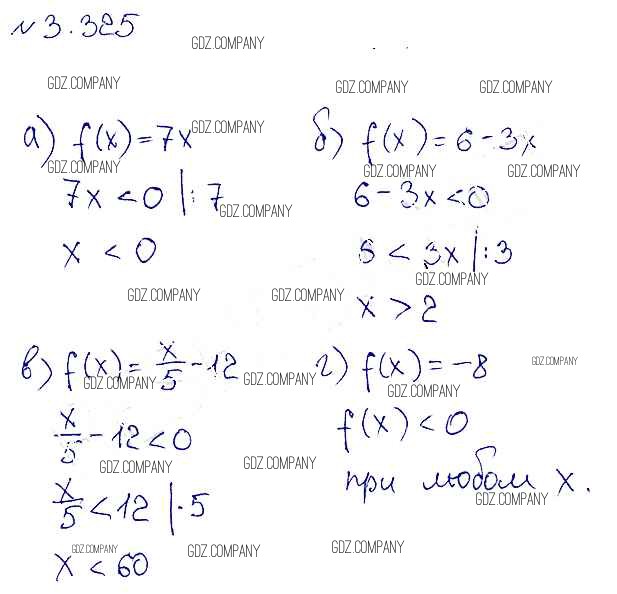 № 3.325
GDZ.COMPANY
GDZ.COMPANY GDZ.COMPANY GDZ.COMPANY
а) f(x) = 7x
GDZ.COMPANY
GDZ.COMPANY
7x < 0 |: 7
GDZ.COMPANY
x < 0
б) f(x) = 6 - 3x
GDZ.COMPANY GDZ.COMPANY
6 - 3x < 0
6 < 3x |: 3
GDZ.COMPANY
x > 2
GDZ.COMPANY GDZ.COMPANY
в) f(x) = x/5 - 12
GDZ.COMPANY GDZ.COMPANY
x/5 - 12 < 0
GDZ.COMPANY GDZ.COMPANY
x/5 < 12 |· 5
GDZ.COMPANY
x < 60
GDZ.COMPANY
г) f(x) = -8
GDZ.COMPANY
GDZ.COMPANY
f(x) < 0
при любом x.
GDZ.COMPANY
GDZ.COMPANY